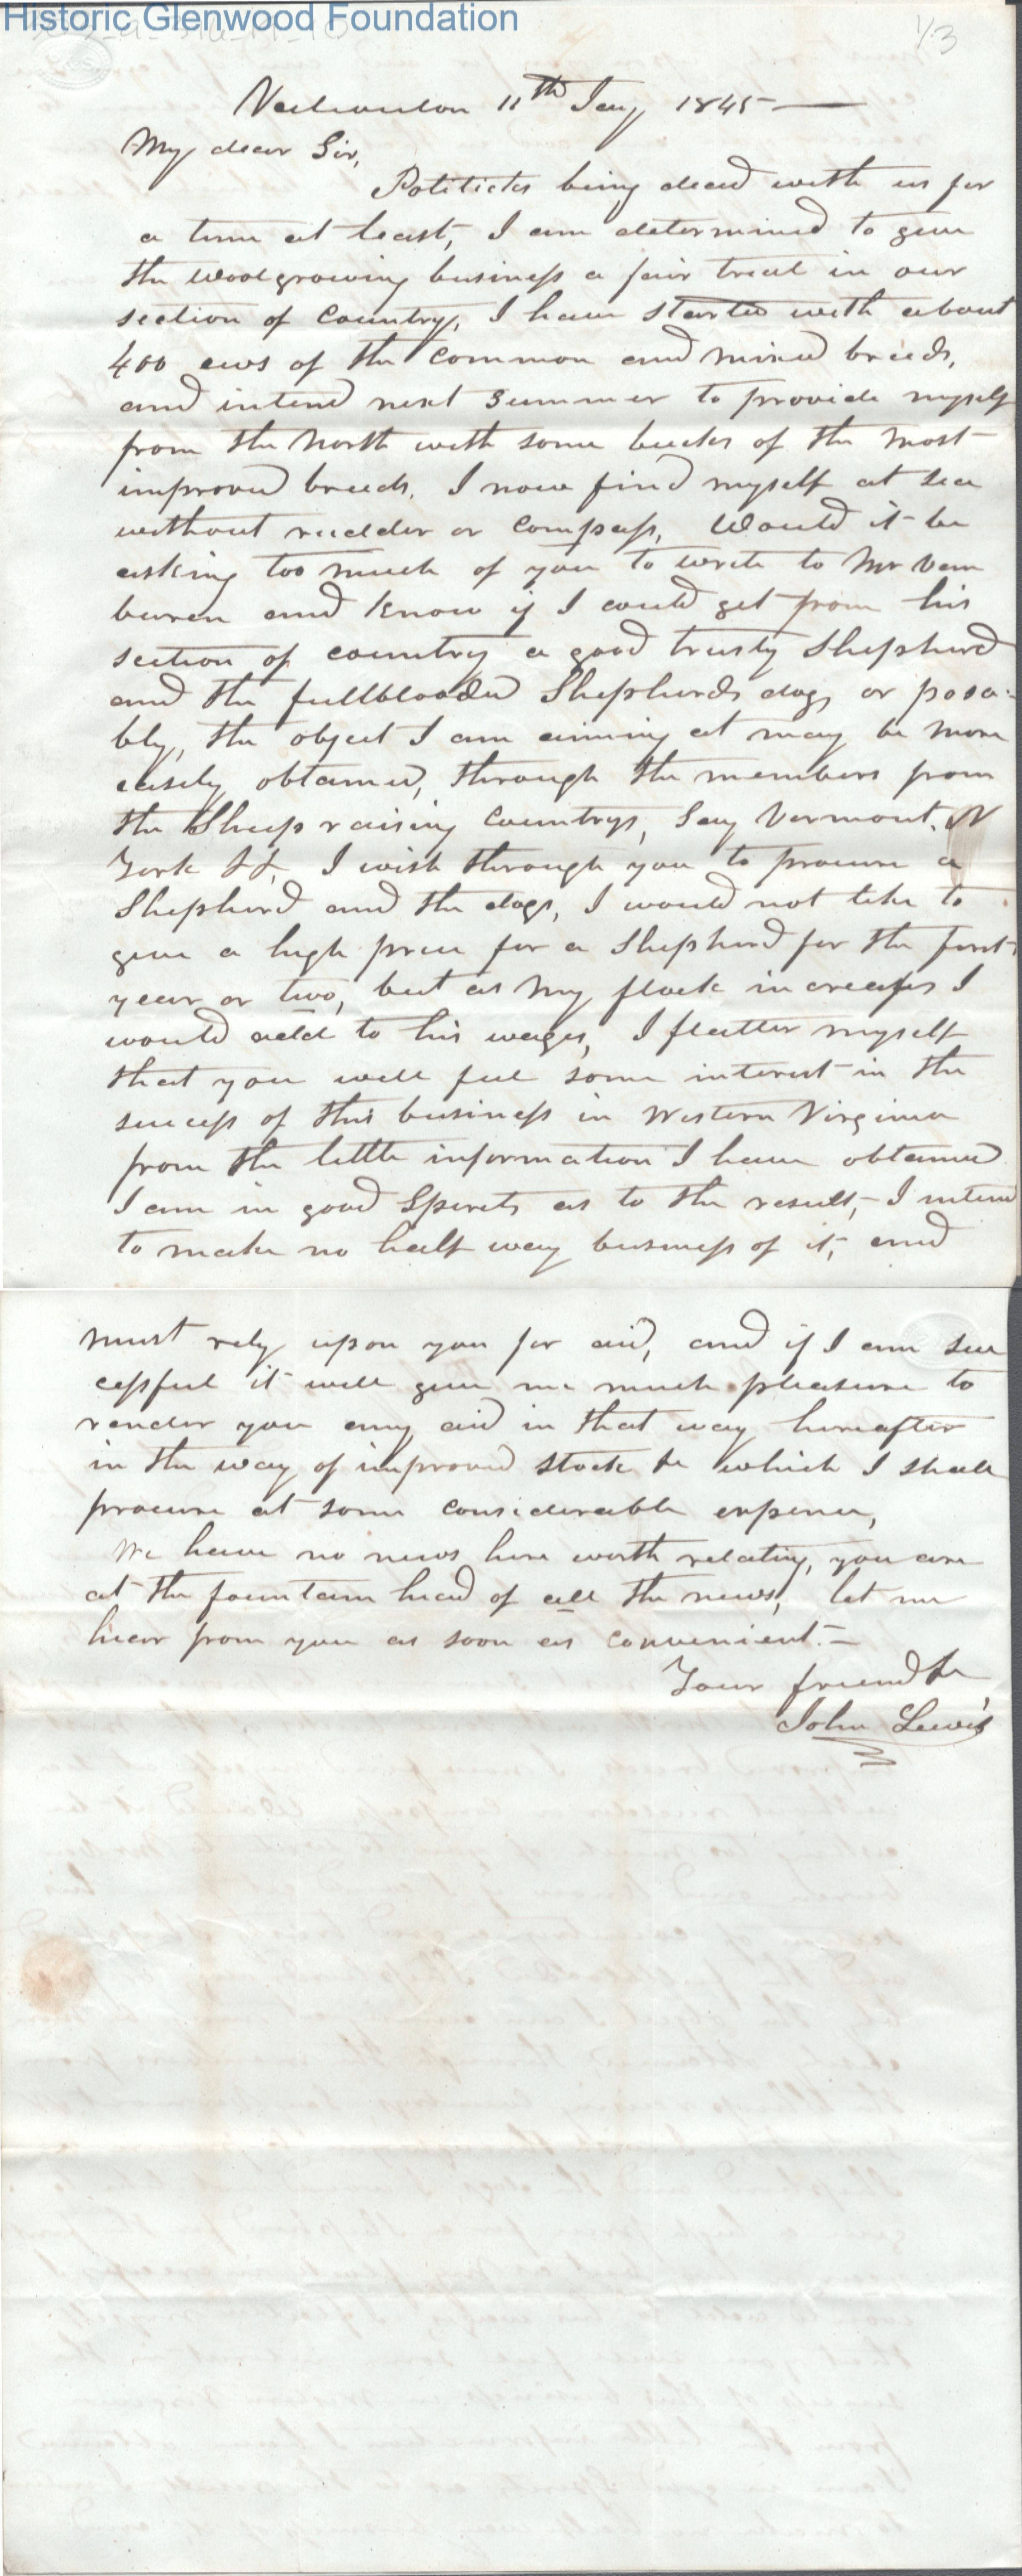 Historic Glenwood Foundation
1/3
11th Jany 1845
My dear Sir,
Politicks being dead with us for
a time at least, I am determined to give
the woolgrowing business a fair treal in our
section of Country, I have started with about
400 ews of the common and mixed breeds,
and intend next Summer to provide myself
from the North with some bucks of the most
improved breeds, I now find myself at sea
without rudder or compass, Would it be
asking too much of you to write to Mr Van
buren and know if I could get from his
section of country a good trusty Shepherd
and the fullblooded Shepherds dogs, or possi-
bly, the object I am aiming at may be more
easily obtained, through the members from
the Sheep raising Countrys, Say Vermont, N
York &c, I wish through you to procure a
Shepherd and the dogs, I would not like to
give a high price for a Shepherd for the first
year or two, but as my flock increases I
would add to his wages, I flatter myself
that you will feel some interest in the
success of this business in Western Virginia
from the little information I have obtained
I am in good Spirits as to the result,- I intend
to make no half way business of it, and
must rely upon you for aid, and if I am suc
cessful it will give me much pleasure to
render you any aid in that way hereafter
in the way of improved stock &c which I shall
procure at some considerable expence,
We have no news here worth relating, you are
at the fountain head of all the news, let me
hear from you as soon as convenient.-
Your friend &c
John Lewis